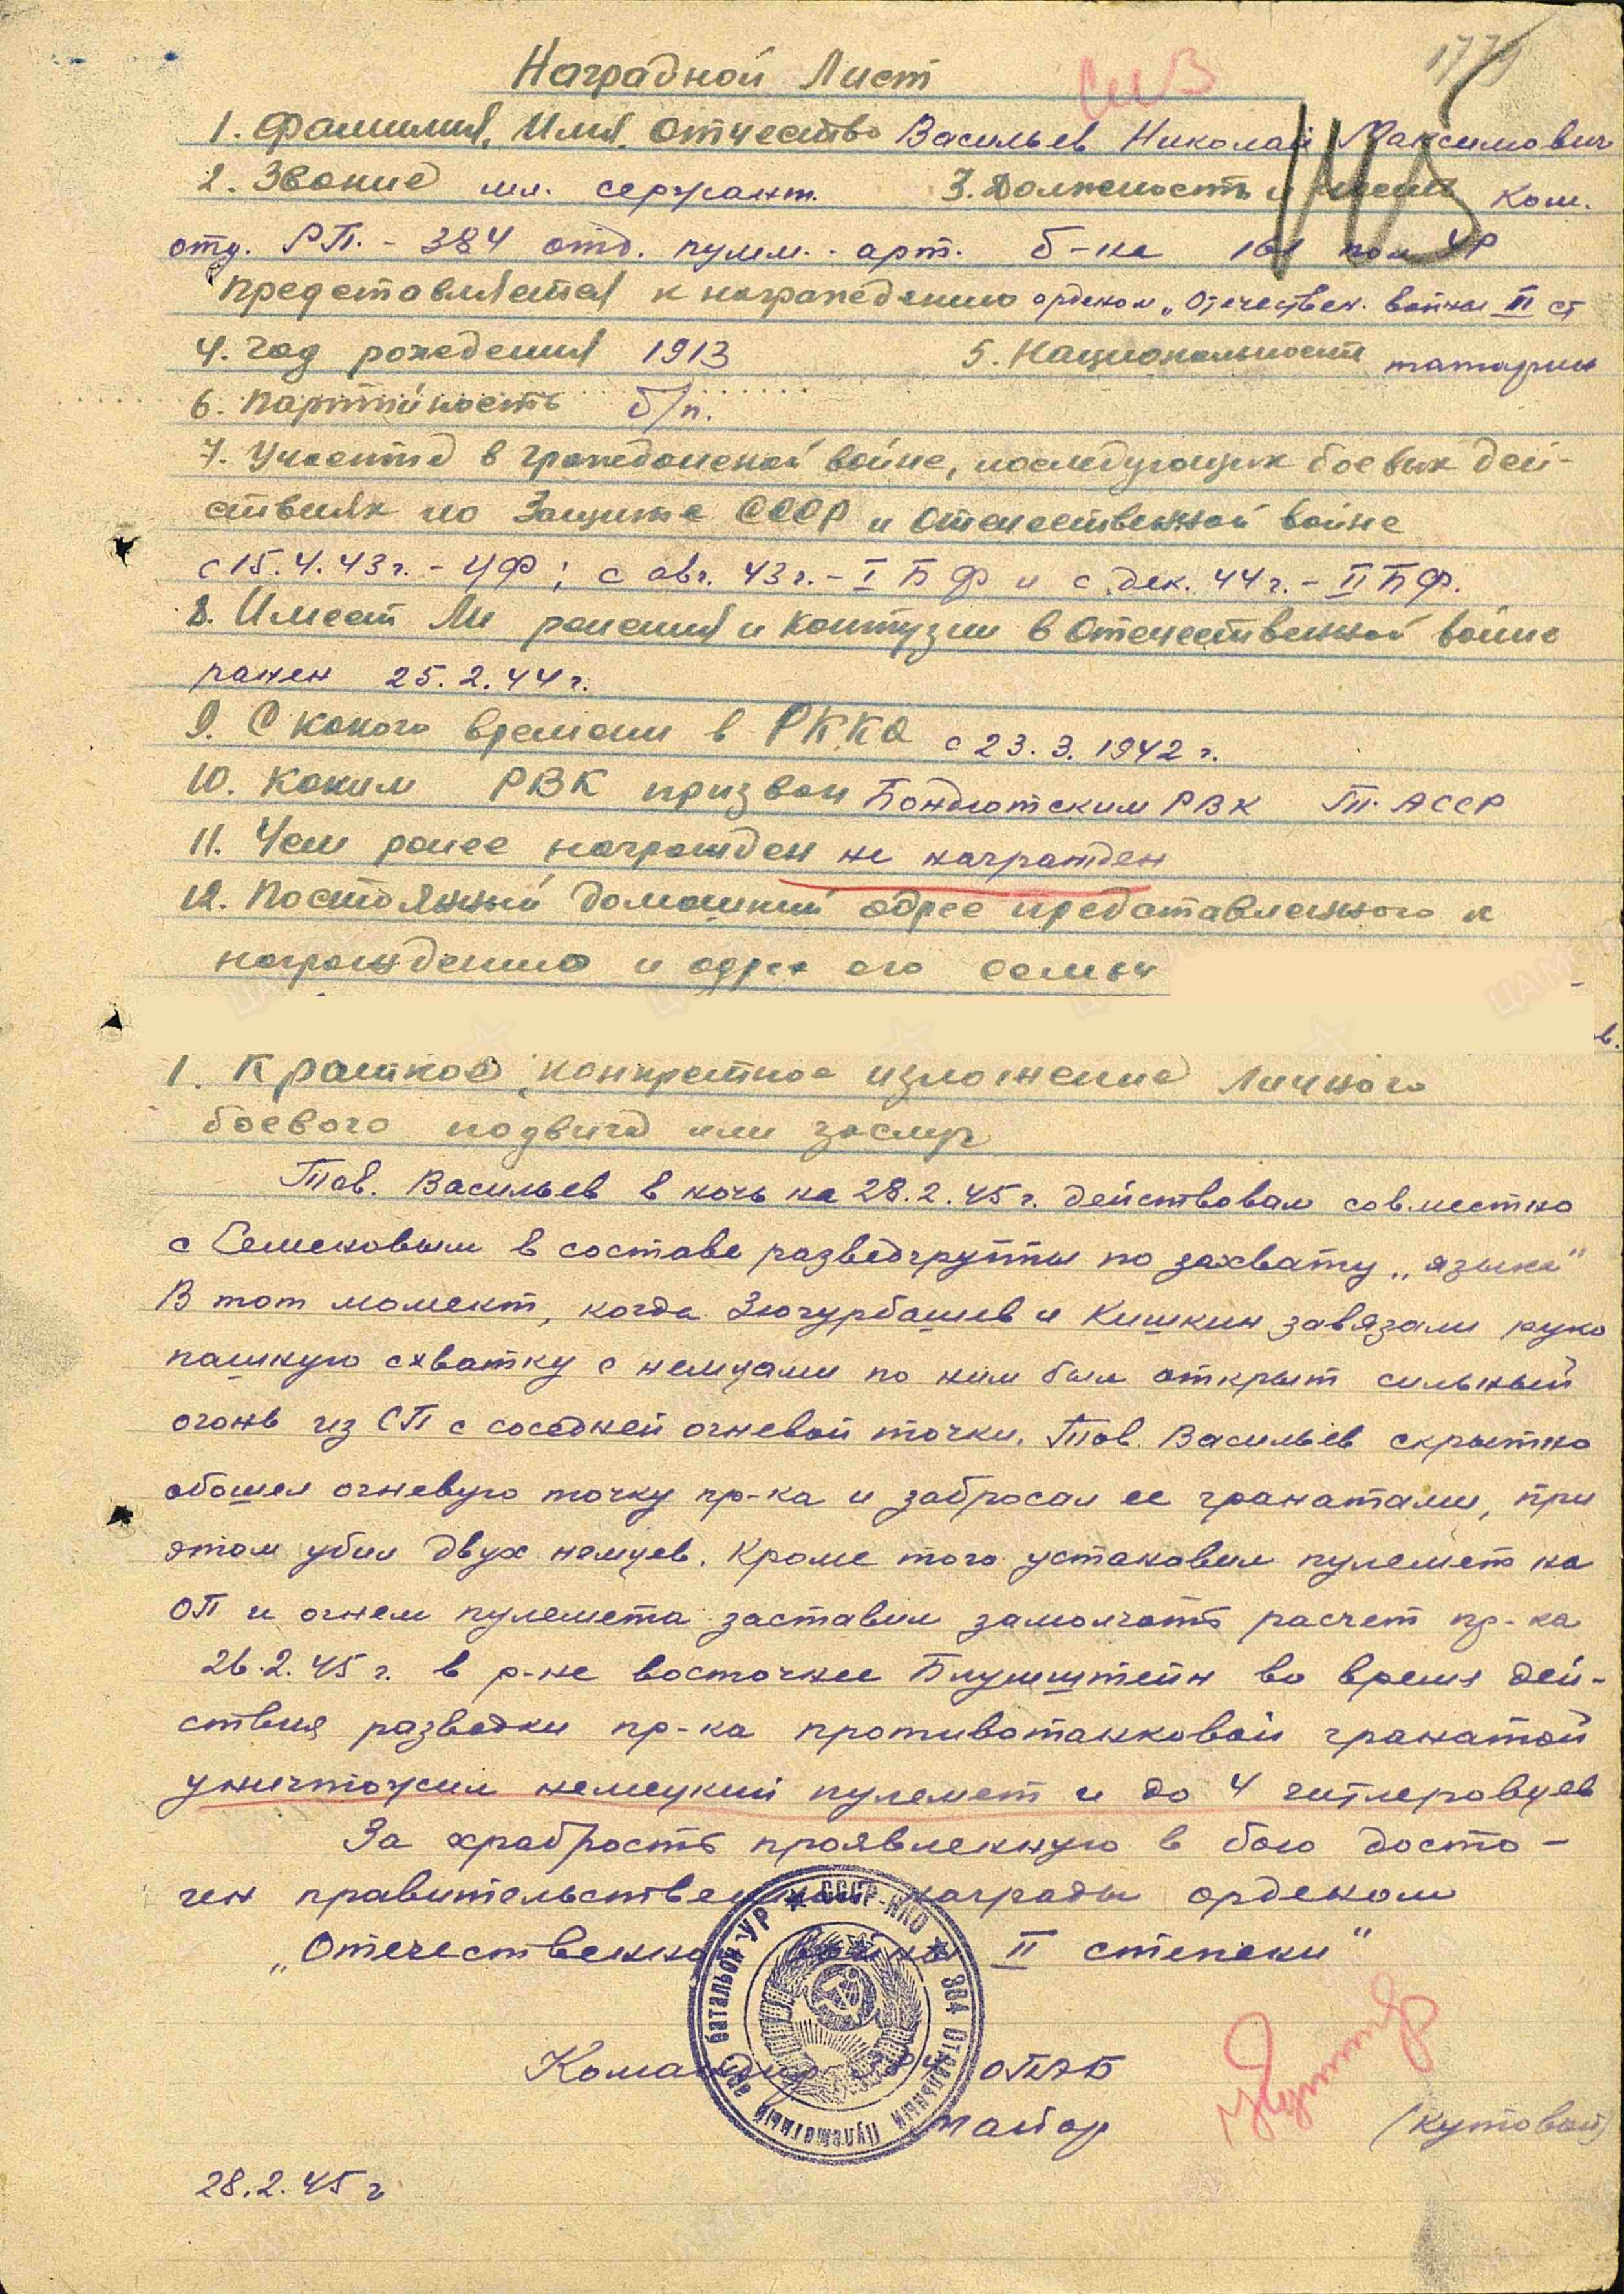 1779
Наградной Лист
1. Фамилия, Имя, Отчество Васильев Николай Максимович
2. Звание мл. сержант. 3. Должность и Ком.
отд. РП. - 384 отд. пулем. - арт. б-на 161 УР
Представляется к награждению орденом „Отечествен. войны II ст
4. Год рождения 1913 5. Национальность татарин
6. Партийность б/п.
7. Участие в гражданской войне, последующих боевых дей-
ствиях по Защите СССР и Отечественной войне
с 15.4.43г. - ЦФ; с авг. 43г. - I БФ и с дек. 44г. - II БФ.
8. Имеет Ли ранения и контузии в Отечественной войне
ранен 25.2.44г.
9. С какого времени в РККА с 23.3.1942г.
10. Каким РВК призван Бондюгским РВК Т. АССР
11. Чем ранее награжден не награжден
12. Постоянный домашний адрес представленного к
награждению и адрес его семьи
в.
1. Краткое, конкретное изложение личного
боевого подвига или заслуг
Тов. Васильев в ночь на 28.2.45г. действовал совместно
с Семековым в составе разведгруппы по захвату „языка"
В тот момент, когда Зюгурбашев и Кишкин завязали руко
пашную схватку с немцами по ним был открыт сильный
огонь из СП с соседней огневой точки. Тов. Васильев скрытно
обошел огневую точку пр-ка и забросал ее гранатами, при
этом убил двух немцев. Кроме того установил пулемет на
ОП и огнем пулемета заставил замолчать расчет пр-ка
26.2.45г. в р-не восточнее Блумштейн во время дей-
ствия разведки пр-ка противотанковой гранатой
уничтожил немецкий пулемет и до 4 гитлеровцев
За храбрость проявленную в бою досто-
ен правительственной награды орденом
„Отечественной войны II степени"
СССР-НКО ★ 384 Отдельный Пулеметный арт. батальон УР ★
Командир 384 ОПАБ
майор (Кутовой)
28.2.45г